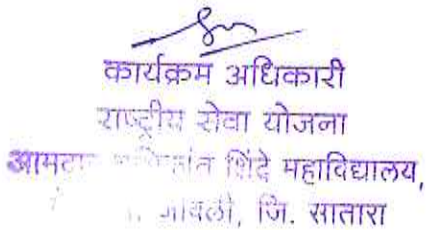 कार्यक्रम अधिकारी
राष्ट्रीय सेवा योजना
शिंदे महाविद्यालय,
जावली, जि. सातारा